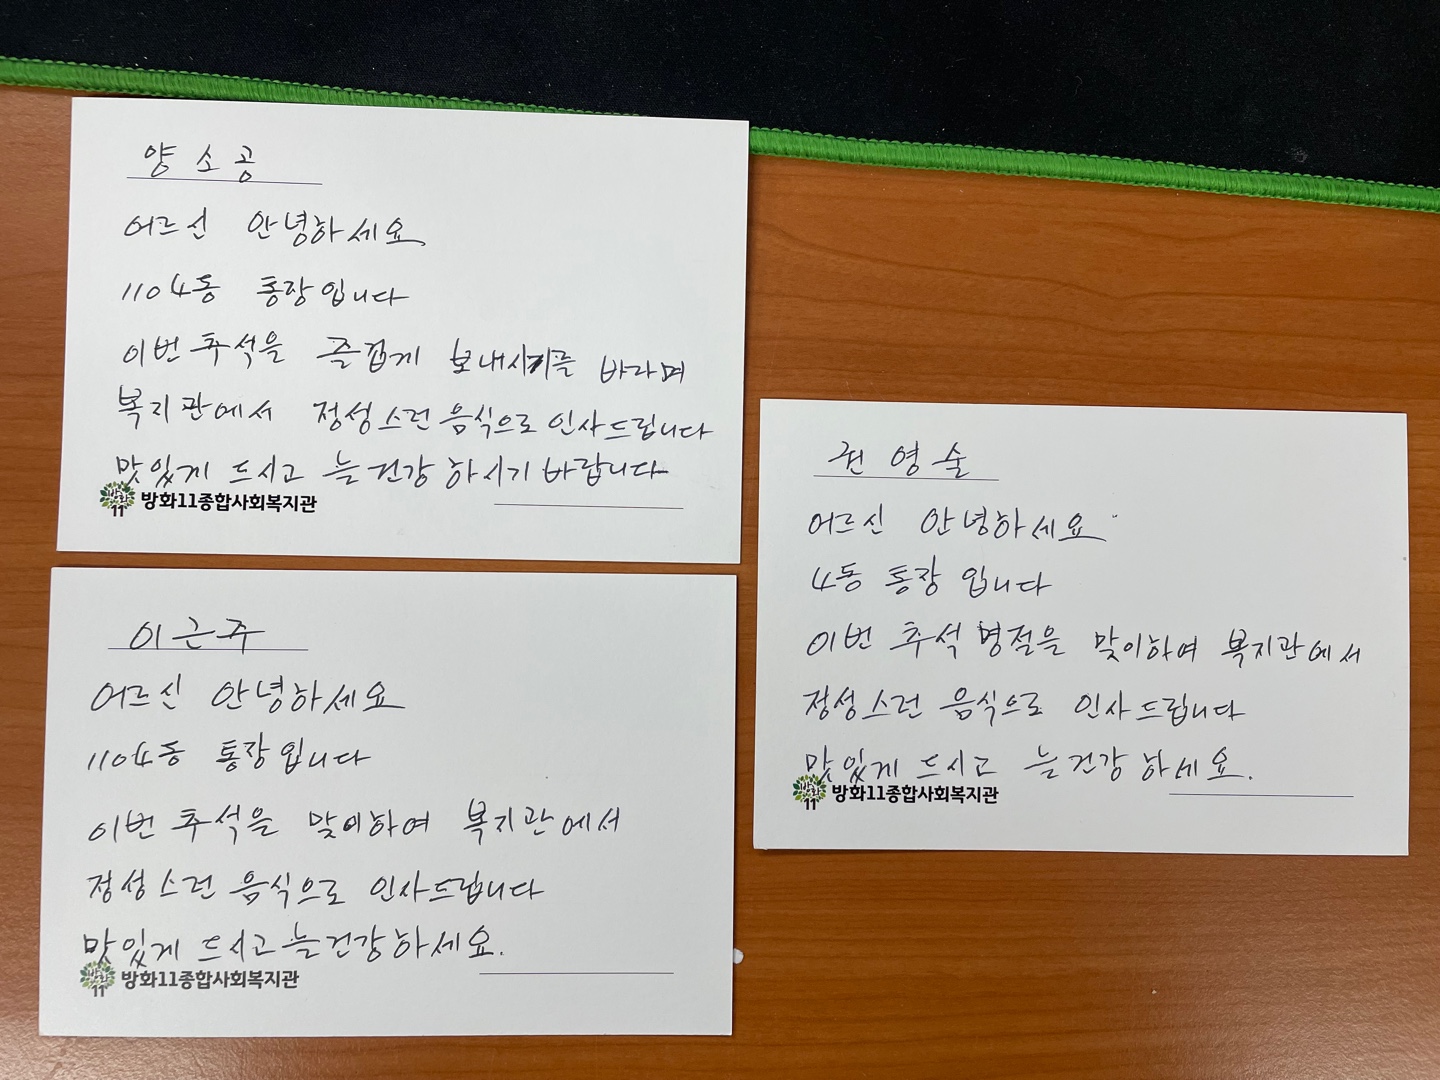 양소공
어르신 안녕하세요
1104동 통장입니다
이번 추석을 즐겁게 보내시기를 바라며
복지관에서 정성스런 음식으로 인사드립니다
맛있게 드시고 늘 건강 하시기 바랍니다
방화11종합사회복지관
이근주
어르신 안녕하세요
1104동 통장입니다
이번 추석을 맞이하여 복지관에서
정성스런 음식으로 인사드립니다
맛있게 드시고 늘 건강하세요.
방화11종합사회복지관
권영술
어르신 안녕하세요
4동 통장 입니다
이번 추석 명절을 맞이하여 복지관에서
정성스런 음식으로 인사드립니다
맛있게 드시고 늘 건강 하세요.
방화11종합사회복지관